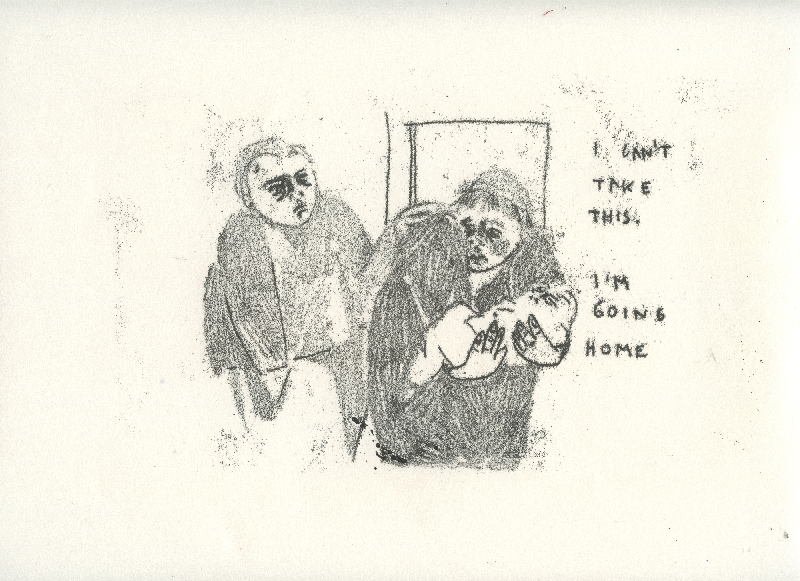 I CAN'T
TAKE
THIS.
I'M
GOING
HOME